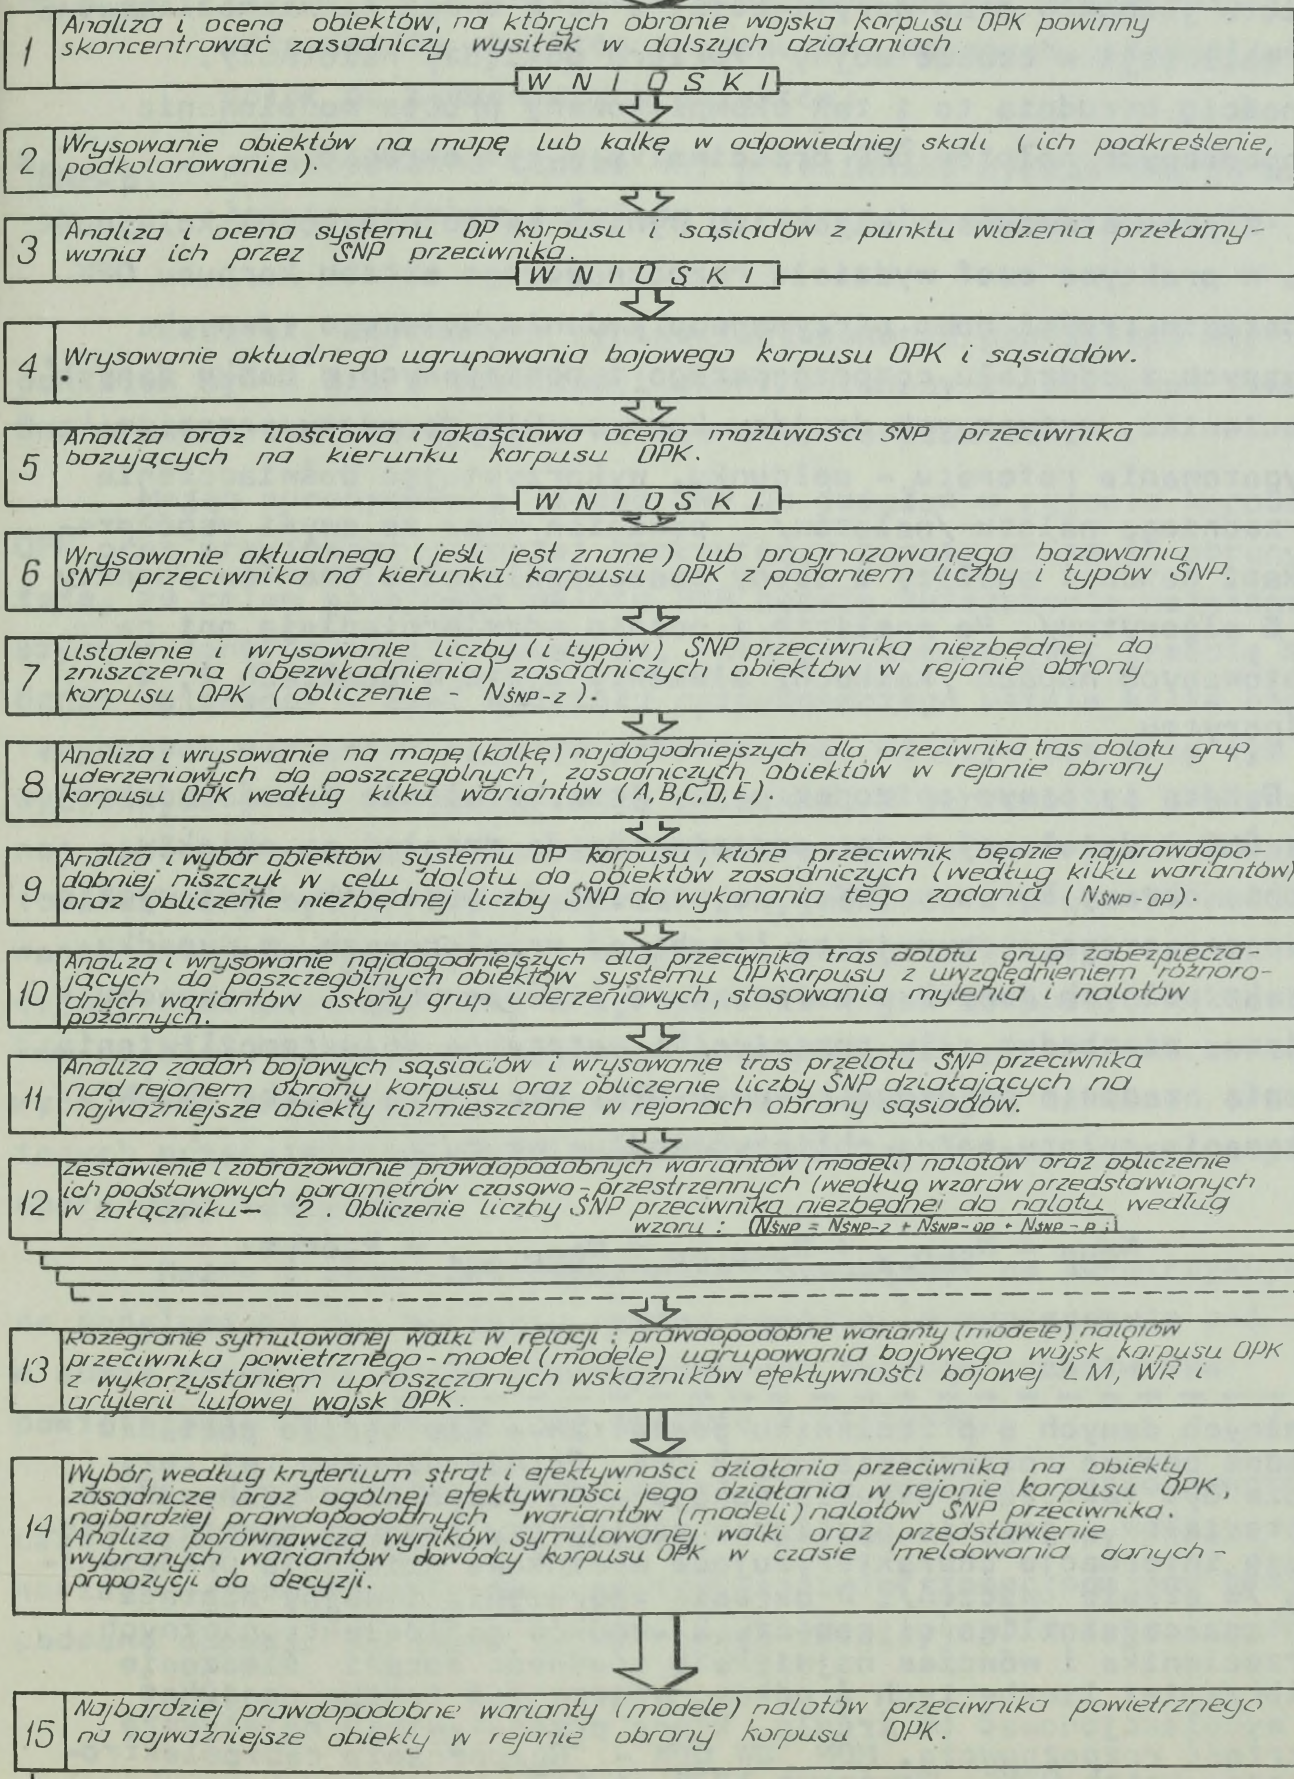 1
Analiza i ocena obiektów, na których obronie wojska korpusu OPK powinny
skoncentrować zasadniczy wysiłek w dalszych działaniach.
WNIOSKI
2
Wrysowanie obiektów na mapę lub kalkę w odpowiedniej skali (ich podkreślenie,
podkolorowanie).
3
Analiza i ocena systemu OP korpusu i sąsiadów z punktu widzenia przełamy-
wania ich przez ŚNP przeciwnika.
WNIOSKI
4
Wrysowanie aktualnego ugrupowania bojowego korpusu OPK i sąsiadów.
5
Analiza oraz ilościowa i jakościowa ocena możliwości ŚNP przeciwnika
bazujących na kierunku korpusu OPK.
WNIOSKI
6
Wrysowanie aktualnego (jeśli jest znane) lub prognozowanego bazowania
ŚNP przeciwnika na kierunku korpusu OPK z podaniem liczby i typów ŚNP.
7
Ustalenie i wrysowanie liczby (i typów) ŚNP przeciwnika niezbędnej do
zniszczenia (obezwładnienia) zasadniczych obiektów w rejonie obrony
korpusu OPK (obliczenie - NŚNP-Z).
8
Analiza i wrysowanie na mapę (kalkę) najdogodniejszych dla przeciwnika tras dolotu grup
uderzeniowych do poszczególnych, zasadniczych obiektów w rejonie obrony
korpusu OPK według kilku wariantów (A,B,C,D,E).
9
Analiza i wybór obiektów systemu OP korpusu, które przeciwnik będzie najprawdopo-
dobniej niszczył w celu dolotu do obiektów zasadniczych (według kilku wariantów)
oraz obliczenie niezbędnej liczby ŚNP do wykonania tego zadania (NŚNP-OP).
10
Analiza i wrysowanie najdogodniejszych dla przeciwnika tras dolotu grup zabezpiecza-
jących do poszczególnych obiektów systemu OP korpusu z uwzględnieniem różnoro-
dnych wariantów osłony grup uderzeniowych, stosowania mylenia i nalotów
pozornych.
11
Analiza zadań bojowych sąsiadów i wrysowanie tras przelotu ŚNP przeciwnika
nad rejonem obrony korpusu oraz obliczenie liczby ŚNP działających na
najważniejsze obiekty rozmieszczone w rejonach obrony sąsiadów.
12
Zestawienie i zobrazowanie prawdopodobnych wariantów (modeli) nalotów oraz obliczenie
ich podstawowych parametrów czasowo-przestrzennych (według wzorów przedstawionych
w załączniku- 2. Obliczenie liczby ŚNP przeciwnika niezbędnej do nalotu według
wzoru : (NŚNP = NŚNP-Z + NŚNP-OP + NŚNP-P ;)
13
Rozegranie symulowanej walki w relacji : prawdopodobne warianty (modele) nalotów
przeciwnika powietrznego-model (modele) ugrupowania bojowego wojsk korpusu OPK
z wykorzystaniem uproszczonych wskaźników efektywności bojowej LM, WR i
artylerii lufowej wojsk OPK.
14
Wybór, według kryterium strat i efektywności działania przeciwnika na obiekty
zasadnicze oraz ogólnej efektywności jego działania w rejonie korpusu OPK,
najbardziej prawdopodobnych wariantów (modeli) nalotów ŚNP przeciwnika.
Analiza porównawcza wyników symulowanej walki oraz przedstawienie
wybranych wariantów dowódcy korpusu OPK w czasie meldowania danych-
propozycji do decyzji.
15
Najbardziej prawdopodobne warianty (modele) nalotów przeciwnika powietrznego
na najważniejsze obiekty w rejonie obrony korpusu OPK.